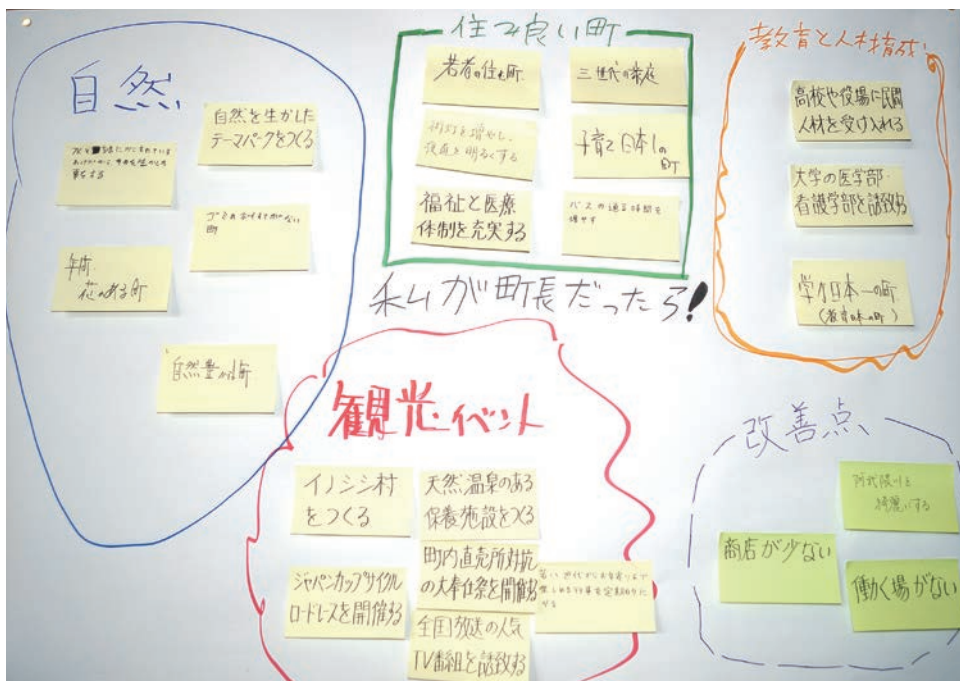 自然
自然を生かした
テーマパークをつくる
事をする
ゴミのおちてない
町
年間
花のある町
自然豊かな町
住み良い町
若者の住む町
三世代の家庭
街灯を増やし、
夜道を明るくする
子育て日本1の
町
福祉と医療
体制を充実する
バスの通る時間を
増やす
私が町長だったら!
教育と人材育成
高校や役場に民間
人材を受け入れる
大学の医学部・
看護学部を誘致する
学力日本一の町
観光・イベント
イノシシ村
をつくる
天然温泉のある
保養施設をつくる
ジャパンカップサイクル
ロードレースを開催する
町内直売所対抗
の大奉仕祭を開催する
全国放送の人気
TV番組を誘致する
若い世代からお年寄りまで
改善点
綺麗にする
商店が少ない
働く場がない